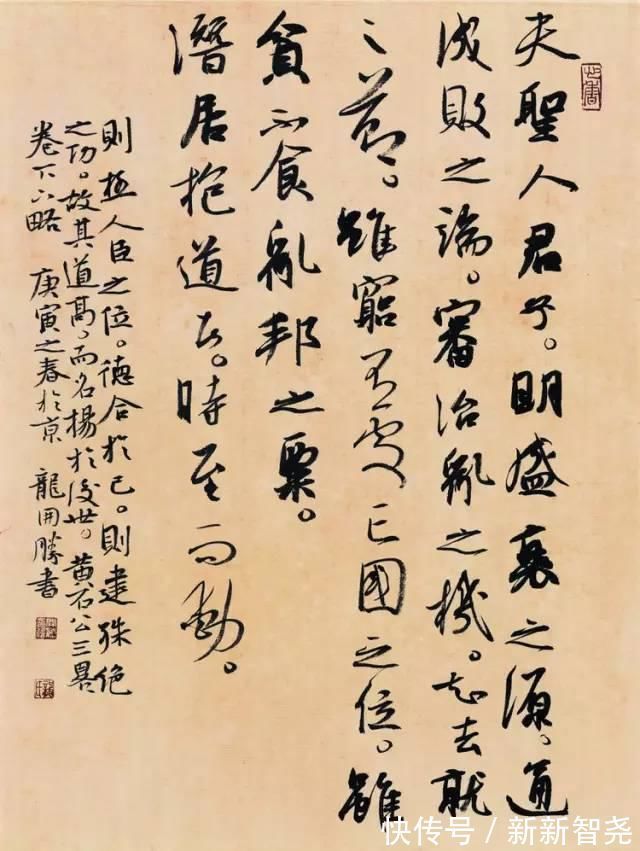 夫聖人君子。明盛衰之源。通
成敗之端。審治亂之機。知去就
之節。雖窮不處亡國之位。雖
貧不食亂邦之粟。
潛居抱道者。時至而動。
則極人臣之位。德合於己。則建殊絶
之功。故其道髙。而名楊於後世。黄石公三畧
卷下下略 庚寅之春於京 龍開勝書
快传号 / 新新智尧